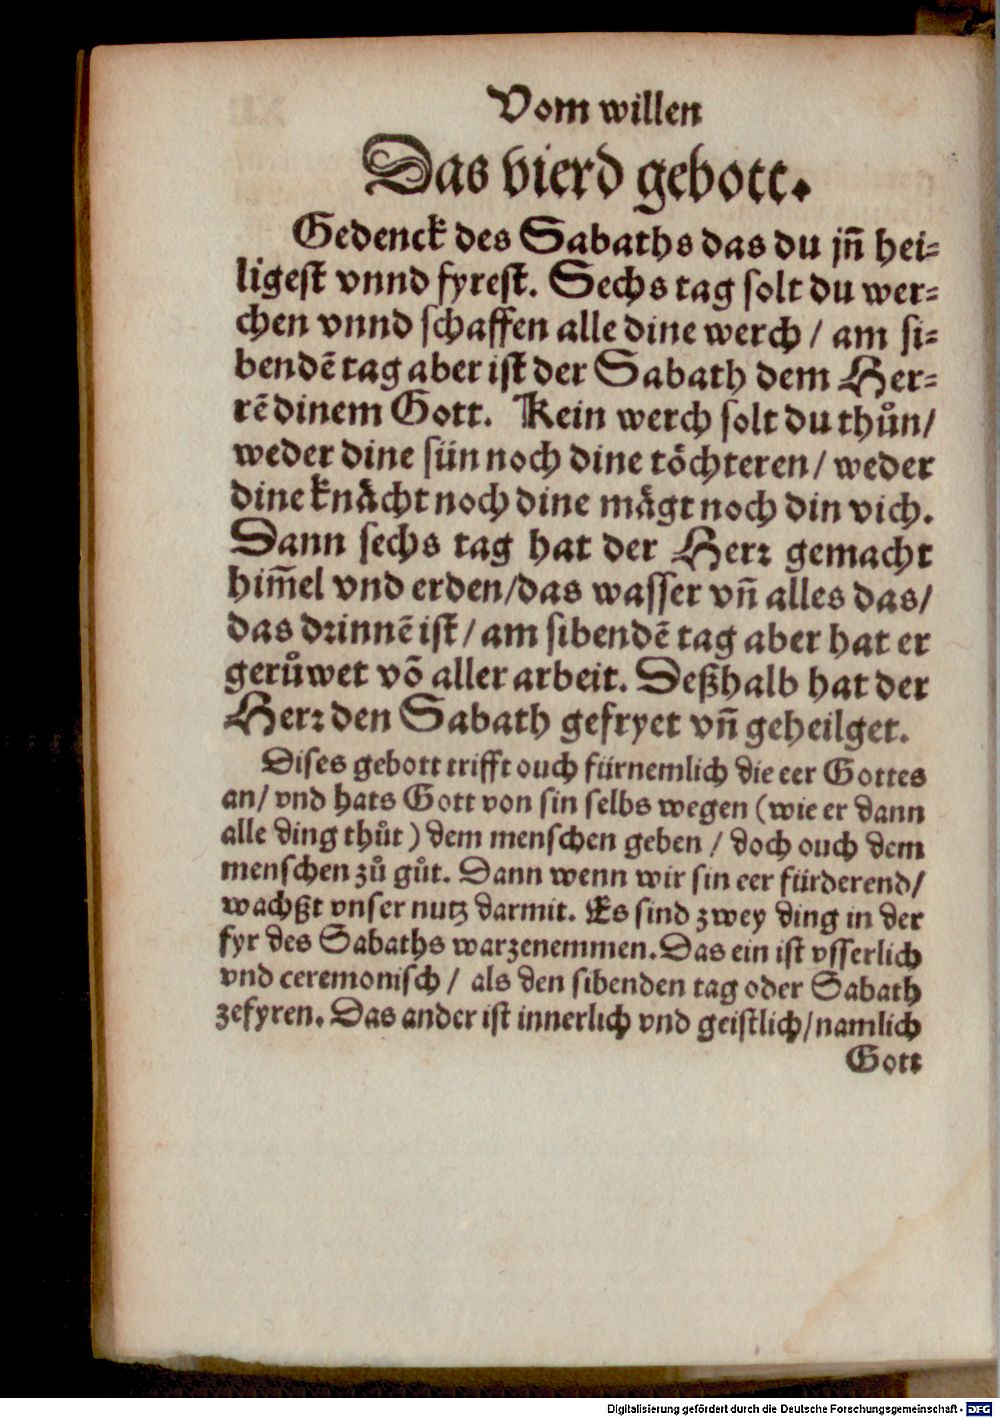 Vom willen
Das vierd gebott.
Gedenck des Sabaths das du jn̄ hei⸗
ligest vnnd fyrest. Sechs tag solt du wer⸗
chen vnnd schaffen alle dine werch / am si⸗
bendē tag aber ist der Sabath dem Her⸗
rē dinem Gott. Kein werch solt du thůn/
weder dine sün noch dine töchteren / weder
dine knächt noch dine mägt noch din vich.
Dann sechs tag hat der Herꝛ gemacht
him̄el vnd erden/das wasser vn̄ alles das/
das dꝛinnē ist / am sibendē tag aber hat er
gerůwet vō aller arbeit. Deßhalb hat der
Herꝛ den Sabath gefryet vn̄ geheilget.
Dises gebott trifft ouch fürnemlich die eer Gottes
an/ vnd hats Gott von sin selbs wegen (wie er dann
alle ding thůt) dem menschen geben / doch ouch dem
menschen zů gůt. Dann wenn wir sin eer fürderend/
wachßt vnser nutz darmit. Es sind zwey ding in der
fyr des Sabaths warzenemmen. Das ein ist vsserlich
vnd ceremonisch / als den sibenden tag oder Sabath
zefyren. Das ander ist innerlich vnd geistlich/namlich
Gott
Digitalisierung gefördert durch die Deutsche Forschungsgemeinschaft - DFG